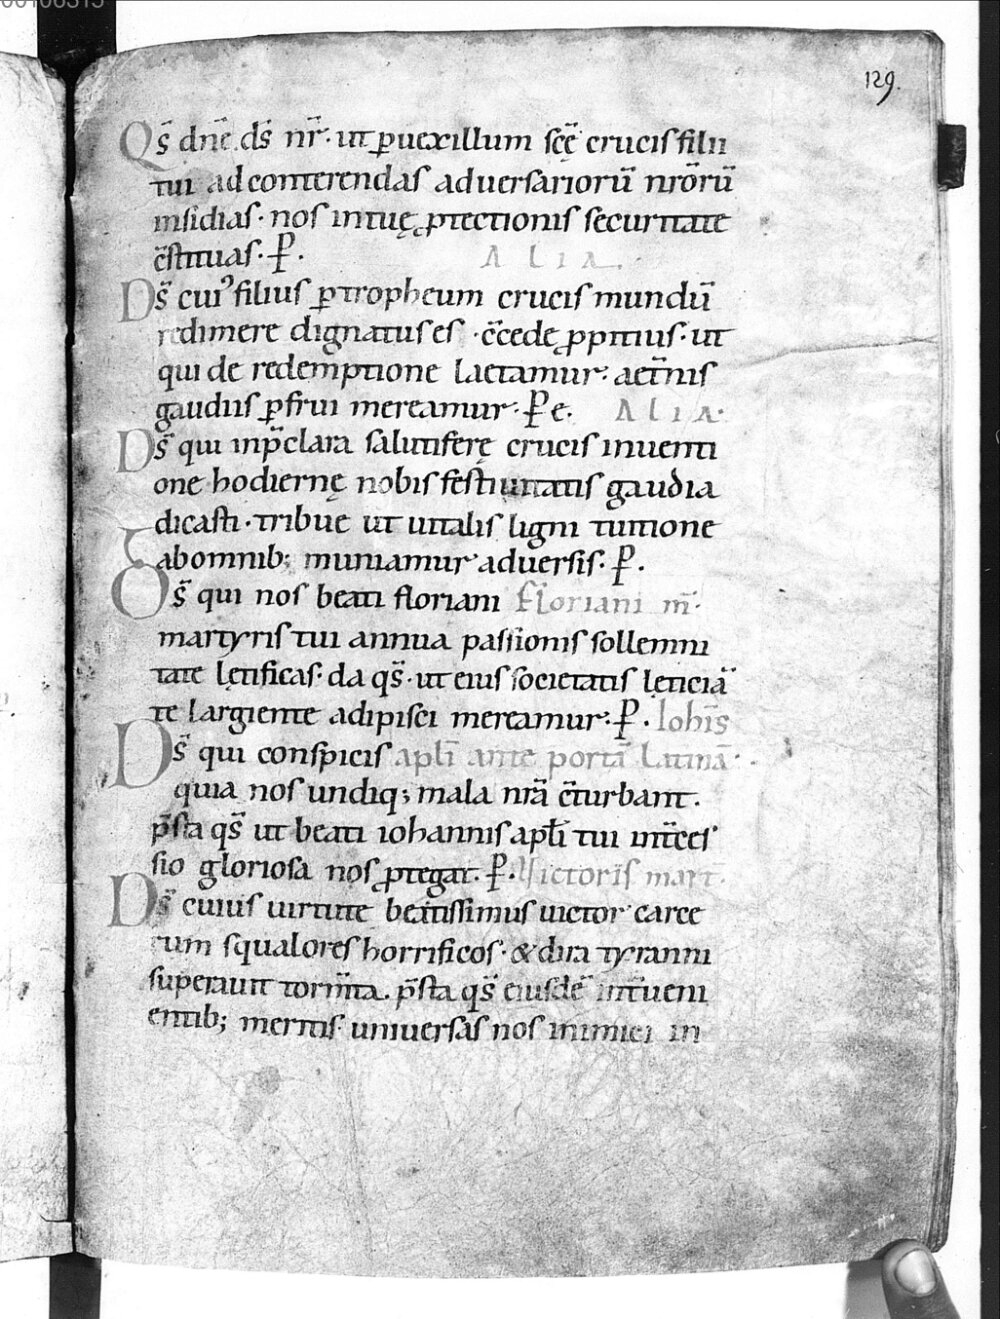 129.
Qs̄ dn̄e ds̄ nr̄· ut ꝑ uexillum scē crucis filii
tui ad conterendas aduersariorū nrōrū
insidias· nos in tuę ꝓtectionis securitate
c̄stituas· P̱·
ALIA·
Ds̄ cui᾿ filius ꝑ tropheum crucis mundū
redimere dignatus es· c̄cede ꝓpitius· ut
qui de redemptione laetamur· aet̄nis
gaudiis ꝑfrui mereamur· P̱ e. ALIA·
Ds̄ qui in p̄clara salutiferę crucis inuenti
one hodiernę nobis festiuitatis gaudia
dicasti· tribue ut uitalis ligni tuitione
ab omnib; muniamur aduersis· P̱·
Ds̄ qui nos beati floriani Floriani m̄·
martyris tui annua passionis sollemni
tate lętificas· da qs̄· ut eius societatis lęticiā
te largiente adipisci mereamur· P̱· Iohīs
Ds̄ qui conspicis apl̄i ante portā Latinā·
quia nos undiq; mala nrā c̄turbant·
p̄sta qs̄ ut beati iohannis apl̄i tui int̄ces
sio gloriosa nos ꝓtegat· P̱· Victoris mart·
Ds̄ cuius uirtute beatissimus uictor carce
rum squalores horrificos· & dira tyranni
superauit torm̄ta· p̄sta qs̄ eiusdē int̄ueni
entib; meritis· uniuersas nos inimici in